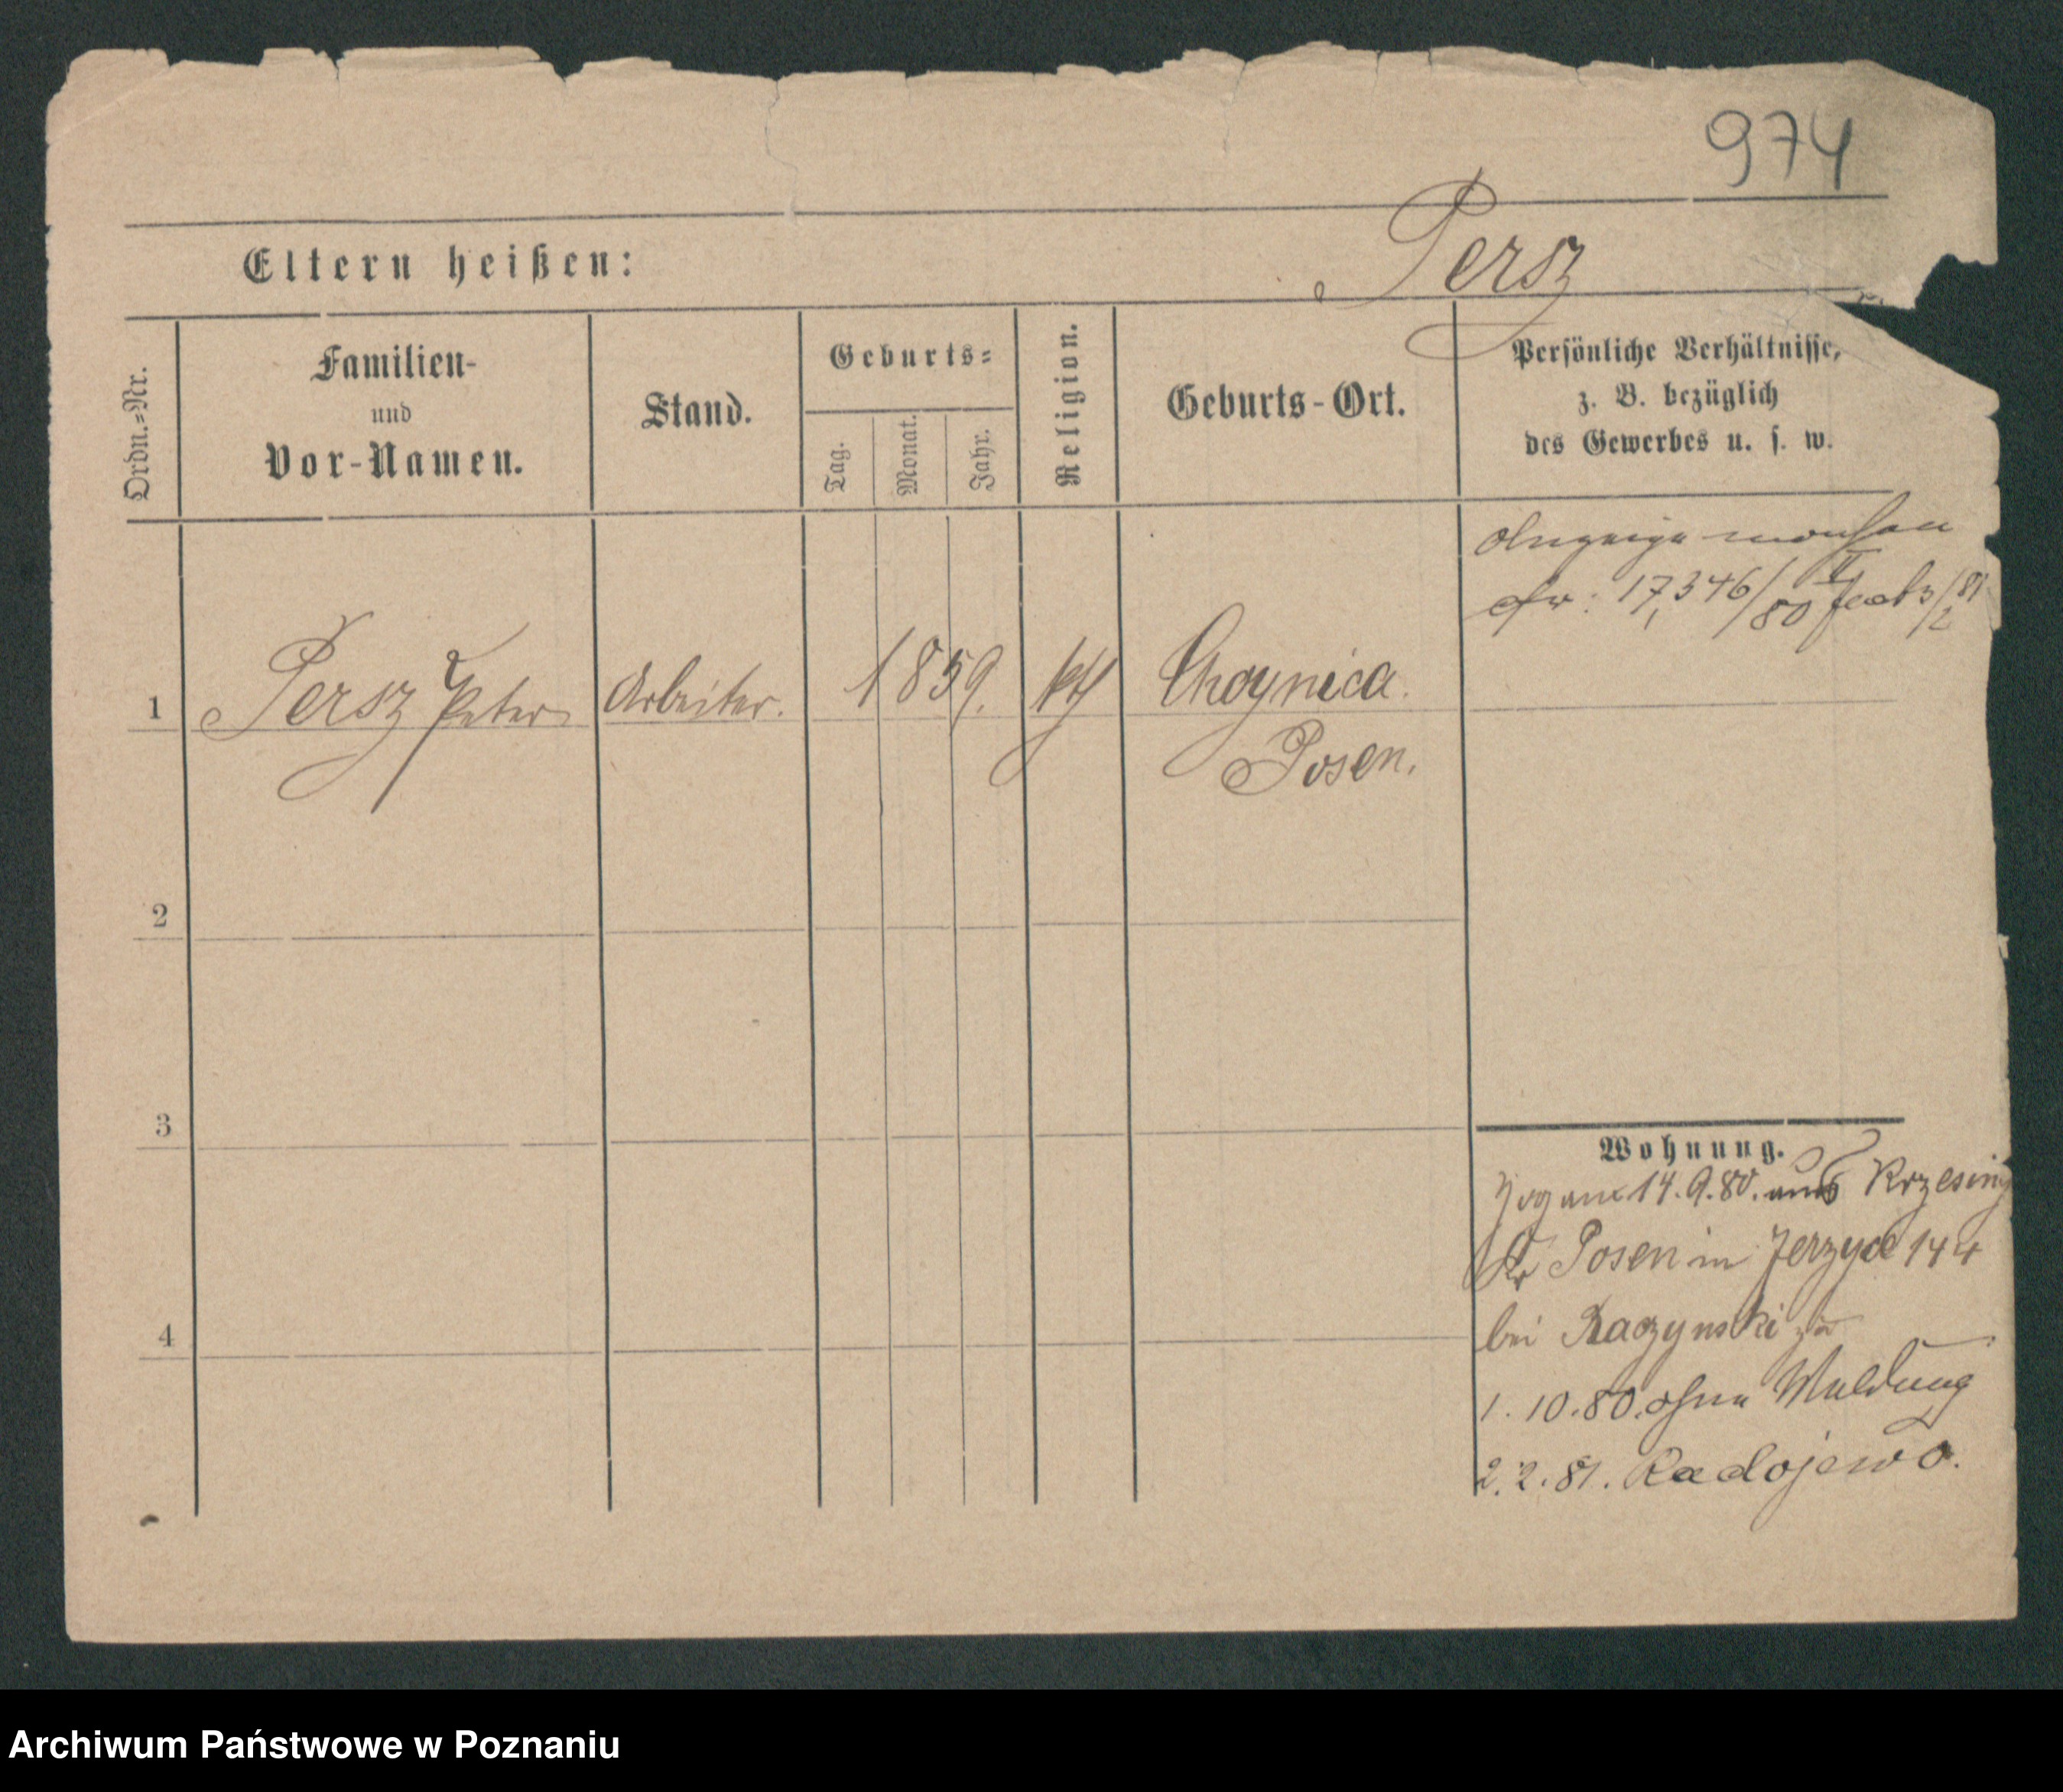 974
Eltern heißen:
Persz
Ordn.=Nr.
Familien-
und
Vor-Namen.
Stand.
Geburts=
Tag.
Monat.
Jahr.
Religion.
Geburts-Ort.
Persönliche Verhältnisse,
z. B. bezüglich
des Gewerbes u. s. w.
17,346/80 II 3/2 81
1
Persz Peter
Arbeiter.
1859.
kth
Choynica.
Posen.
2
3
4
Wohnung.
Zog am 14.9.80. aus Krzesiny
Kr Posen in Jerzyce 144
bei Raczynski zu
1.10.80. ohne Meldung
2.2.81. Radojewo.
Archiwum Państwowe w Poznaniu